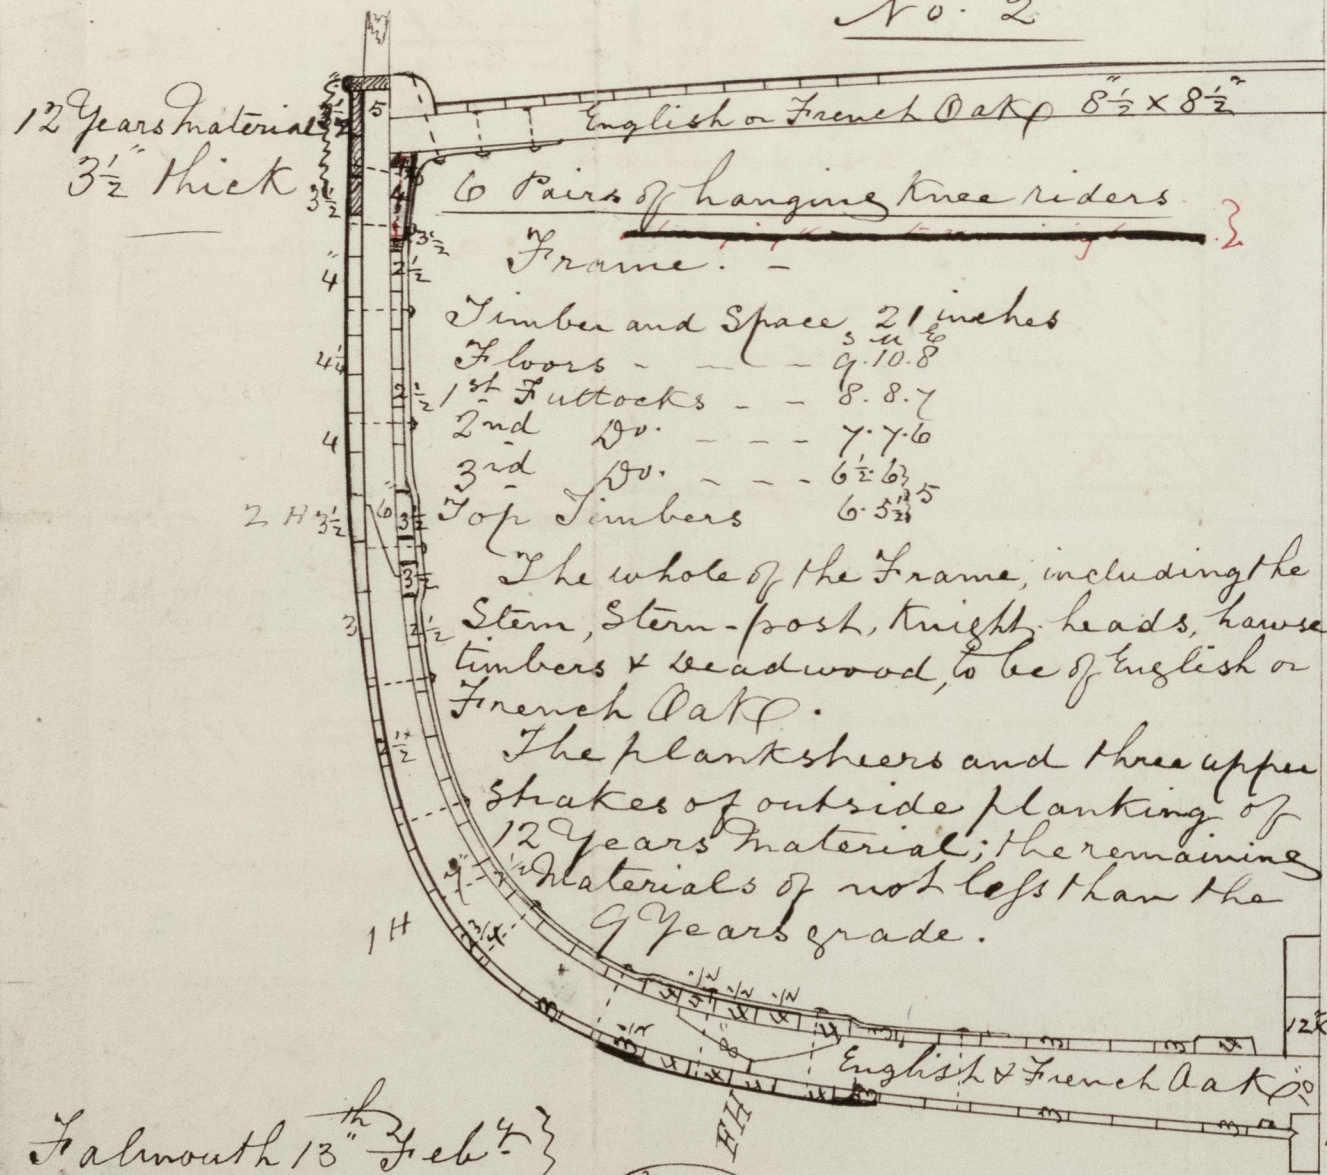 No. 2
12 Years Material
3½" thick
English or French Oak 8½" x 8½"
6 Pairs of hanging Knee riders
Frame. -
Timber and Space 21 inches
S M E
Floors - - - - 9.10.8
1st Futtocks - - 8.8.7
2nd Do. - - - - 7.7.6
3rd Do. - - - 6½.6
Top Timbers 6.5½ 5
The whole of the Frame, including the
Stem, Stern-post, Knight-heads, hawse
timbers & Deadwood, to be of English or
French Oak.
The planksheers and three upper
Strakes of outside planking of
12 Years Material; the remaining
Materials of not less than the
9 Years grade.
5
3½
4
3½
2½
4
4¼
2½
4
2 H 3½
6"
3½
3½
3
2½
2½
9"
2¾
1 H
3
3½
4 4 4 4
8
3 3 4
12
English & French Oak
10
4 4 4 4 3
3 3
FH
Falmouth 13th Feby